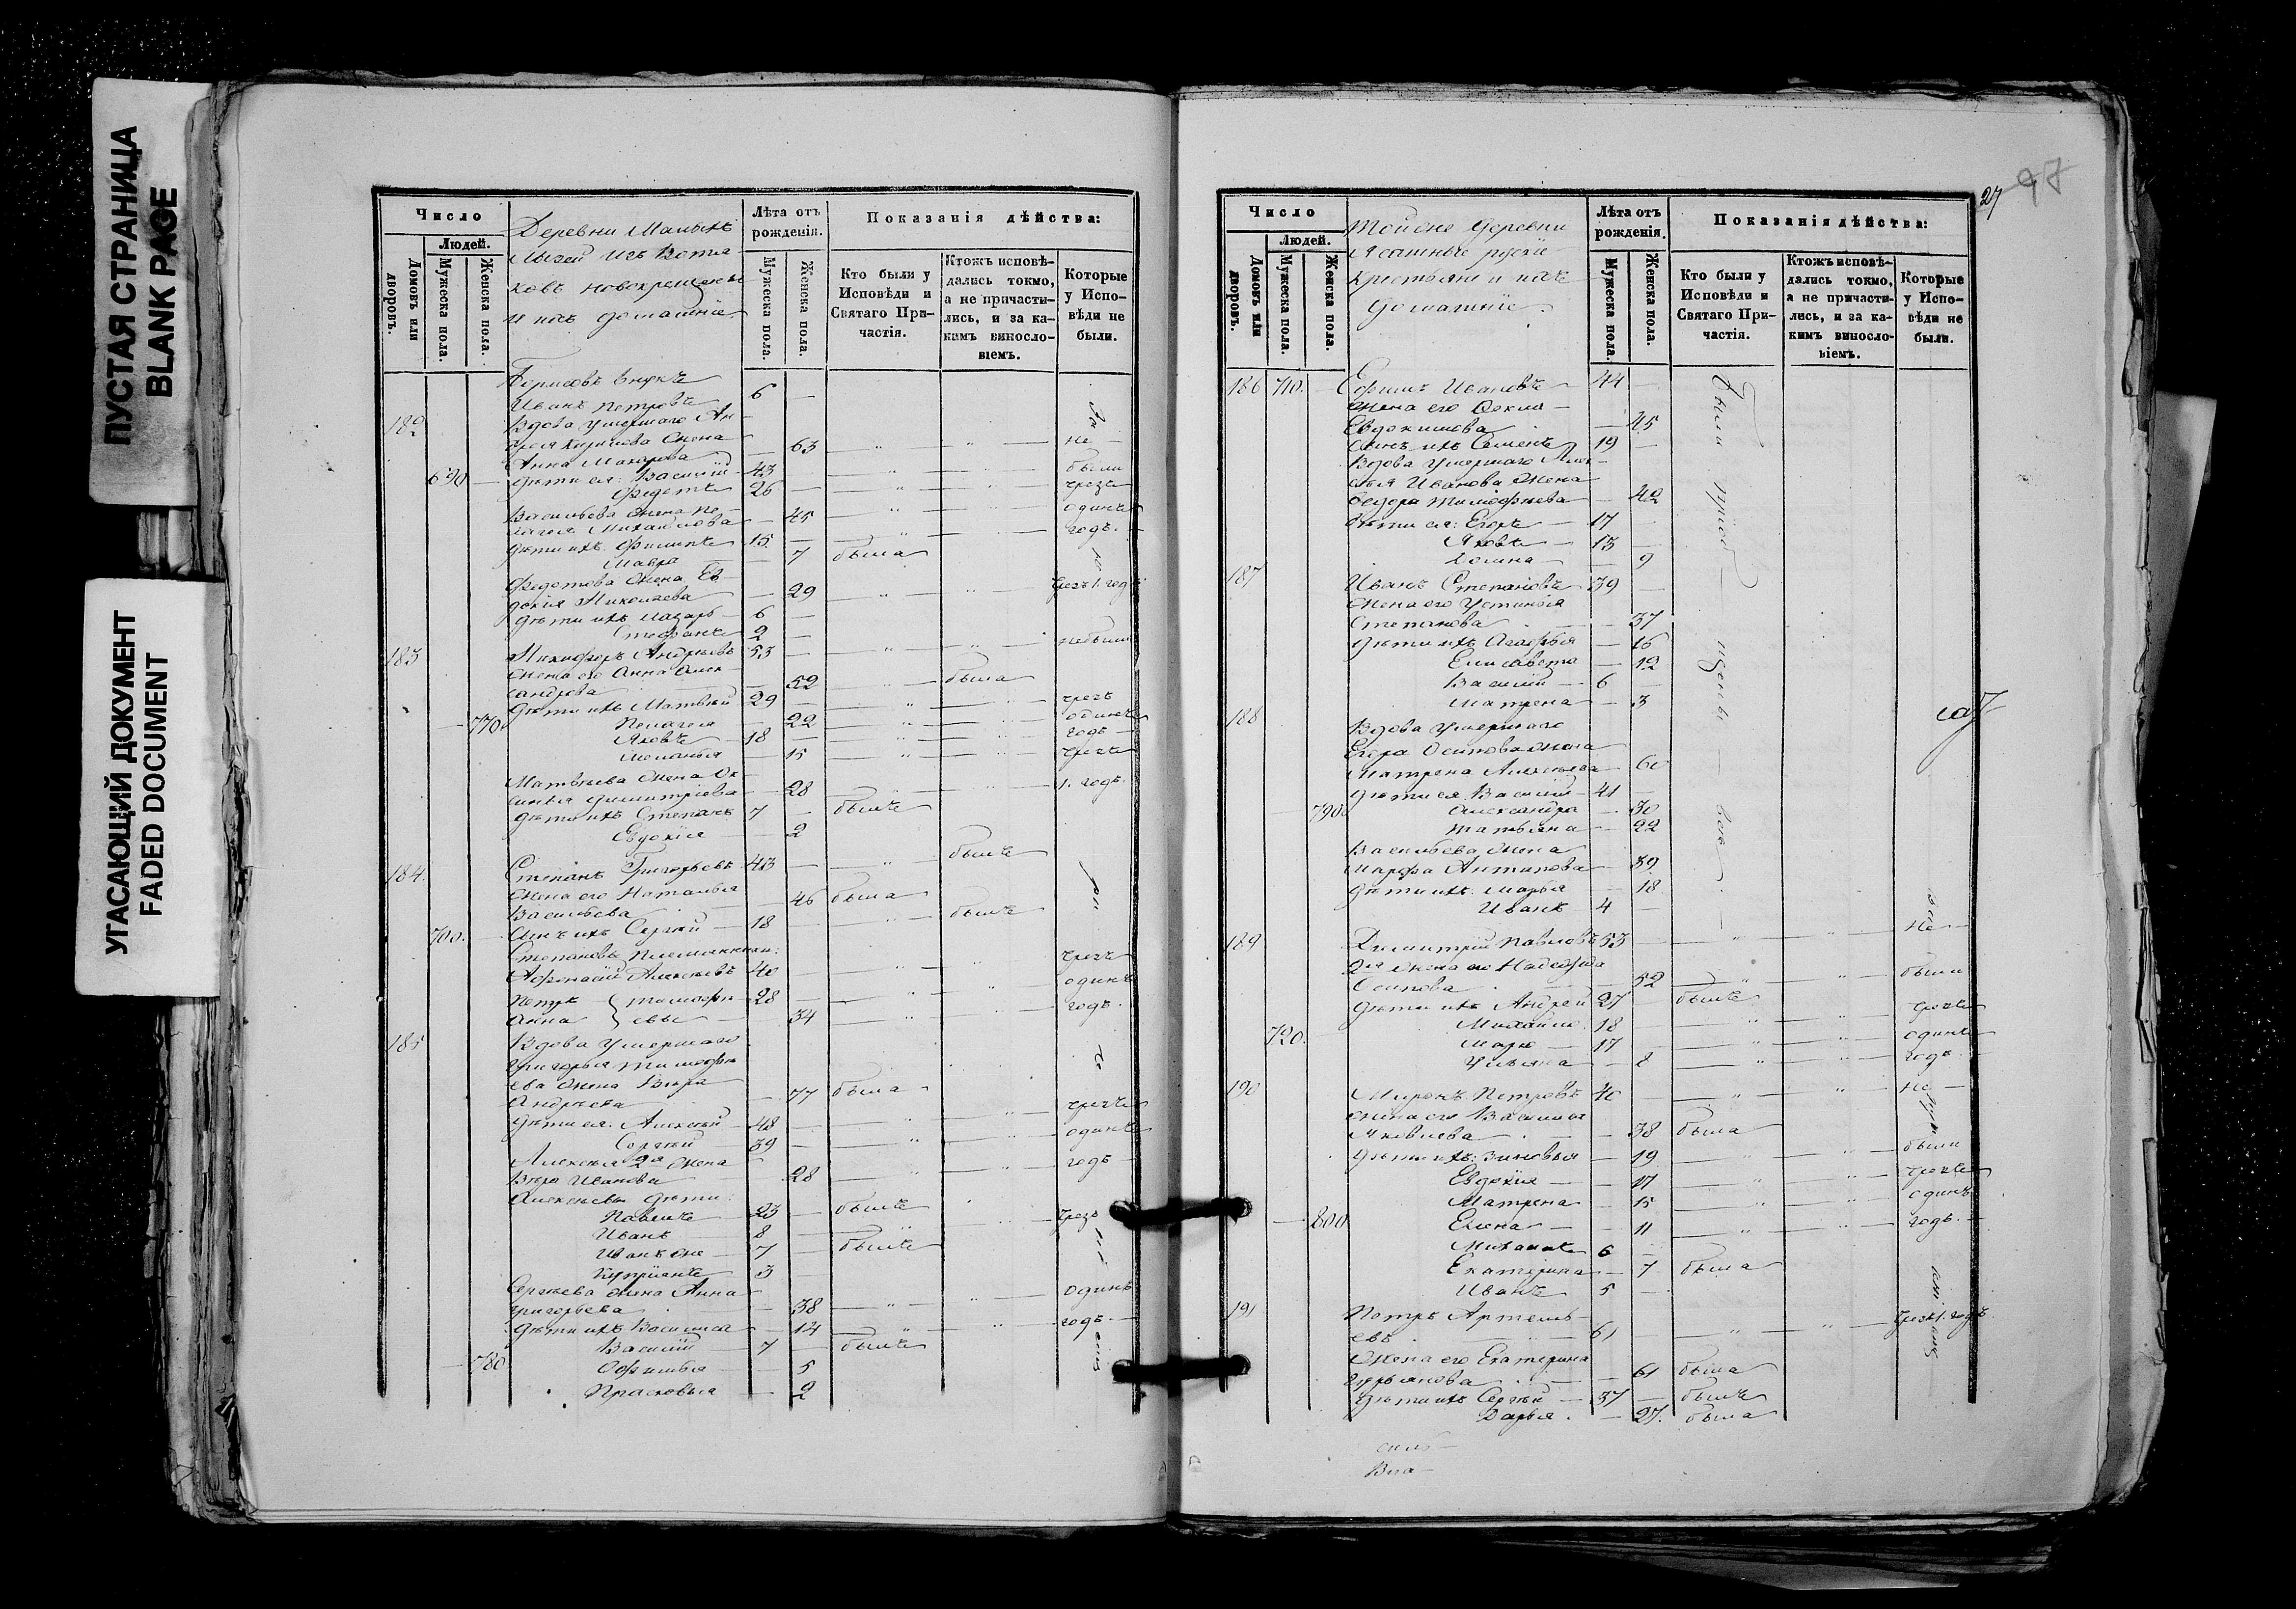 ПУСТАЯ СТРАНИЦА
BLANK PAGE
УГАСАЮЩИЙ ДОКУМЕНТ
FADED DOCUMENT
Число
Людей.
Домовъ или дворовъ.
Мужеска пола.
Женска пола.
Деревни Малыхъ
ковъ новокрещены
и ихъ домашніе
Лѣта отъ рожденія.
Мужеска пола.
Женска пола.
Показанія дѣйства:
Кто были у Исповѣди и Святаго При-частія.
Ктожъ исповѣ-дались токмо, а не причасти-лись, и за ка-кимъ винословіемъ.
Которые у Испо-вѣди не были.
Борисовъ внукъ
Иванъ Петровъ 6
182 Вдова умершаго Ан-
дрея Кирилова жена
Анна Макарова 63 не
690 дѣти ея: Василій 43 были
Федотъ 26 чрезъ
Васильева жена Пе-
лагея Михайлова 45 одинъ
дѣти ихъ Филипъ 15 годъ
Мавра 7 была
Федотова жена Ев-
докія Николаева 29 чрезъ 1. годъ
дѣти ихъ Назаръ 6
Стефанъ 2
183 Никифоръ Андреевъ 53 небыли
жена его Анна Алек-
сандрова 52 была
дѣти ихъ Матвѣй 29 чрезъ
770 Пелагея 22 одинъ
Яковъ 18 годъ
Меланья 15 чрезъ
Матвѣева жена Ок-
синья Димитріева 28 1. годъ
дѣти ихъ Степанъ 7 былъ
Евдокія 2
184. Степанъ Григорьевъ 43 былъ
жена его Наталья
Васильева 46 была
700. сынъ ихъ Сергѣй 18 былъ
Степановы племянники:
Афонасій Алексѣевъ 40 чрезъ
Петръ } Тимофѣ- 28 одинъ
Анна } евы 34 годъ
185 Вдова умершаго
Григорья Тимофѣ
ева жена Вѣра
Андреева 77 была
дѣти ея: Алексѣй 48 чрезъ
Сергѣй 39 одинъ
Алексѣя 2я жена
Вѣра Иванова 28 годъ
Алексѣевы дѣти:
Павелъ 23 былъ
Иванъ 8 чрезъ
Иванъ же 7 былъ
Купріянъ 3
Сергѣева жена Анна
Григорьева 38 одинъ
дѣти ихъ Василиса 14 годъ
Василій 7 былъ
780 Офимья 5
Прасковья 2
27
Число
Людей.
Домовъ или дворовъ.
Мужеска пола.
Женска пола.
Тойже деревни
Ясашные русскіе
Крестьяне и ихъ
домашніе
Лѣта отъ рожденія.
Мужеска пола.
Женска пола.
Показанія дѣйства:
Кто были у Исповѣди и Святаго При-частія.
Ктожъ исповѣ-дались токмо, а не причасти-лись, и за ка-кимъ винословіемъ.
Которые у Испо-вѣди не были.
186 710. Ефимъ Ивановъ 44
жена его Фекла
Евдокимова 45
сынъ ихъ Семенъ 19
Вдова умершаго Алек-
сѣя Иванова жена
Федора Тимофѣева 42
дѣти ея: Егоръ 17
Яковъ 13
9
187 Иванъ Степановъ 39
жена его Устинья
Степанова 37
дѣти ихъ Агафья 16
Елисавета 12
Василій 6
Матрена 3
188 Вдова умершаго
Егора Осипова жена
Матрена Алексѣева 60
дѣти ея: Василій 41
790 Александра 30
Татьяна 22
Васильева жена
Марфа Антипова 39
дѣти ихъ: Марья 18
Иванъ 4
189 Димитрій Павловъ 53 не
2я жена его Надежда
Осипова 52 были
дѣти ихъ Андрей 27 былъ
Михайло 18 чрезъ
720. 17 одинъ
Ульяна 8 годъ
190 Миронъ Петровъ 40 не
жена его Василиса
Яковлева 38 была
дѣти ихъ: Зиновья 19 были
Евдокія 17 чрезъ
Матрена 15 одинъ
800 Елена 11 годъ
6
Екатерина 7 была
Иванъ 5
191 Петръ Артемь-
евъ 61 чрезъ 1. годъ
Жена его Екатерина
61 была
дѣти ихъ Сергѣй 37 былъ
Дарья 27. была